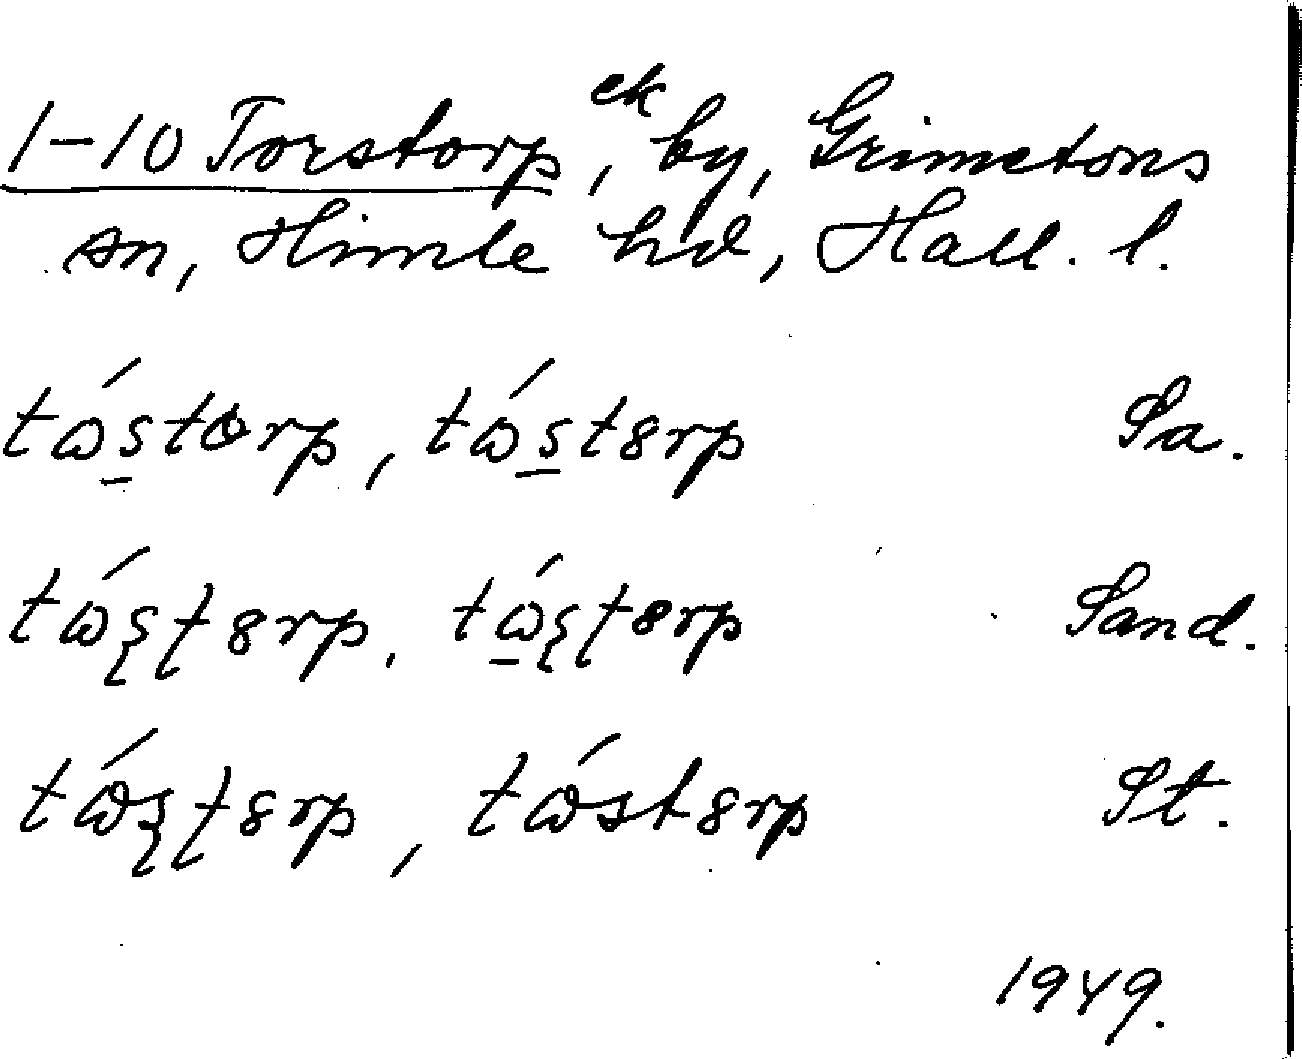 1-10 Torstorp, ek by, Grimetons
sn, Himle hd, Hall. l.
tɷ́s̠torp, tɷ́s̠t8rp Sa.
tɷ́ʂʈ8rp, tɷ̠́ʂʈ8rp Sand.
tɷ́ʂʈ8rp, tɷ́st8rp St.
1949.